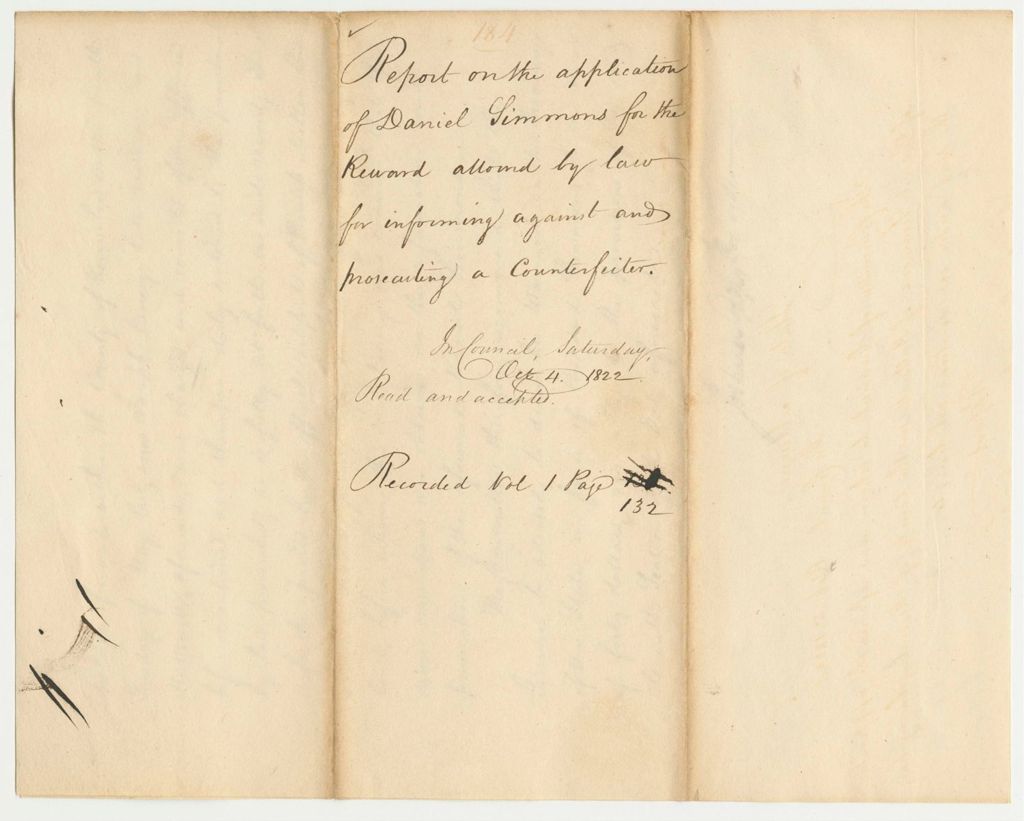 184
Report on the application
of Daniel Simmons for the
Reward allowed by law
for informing against and
prosecuting a Counterfeiter.
In Council, Saturday,
Oct 4. 1822.
Read and accepted.
Recorded Vol 1 Page
132